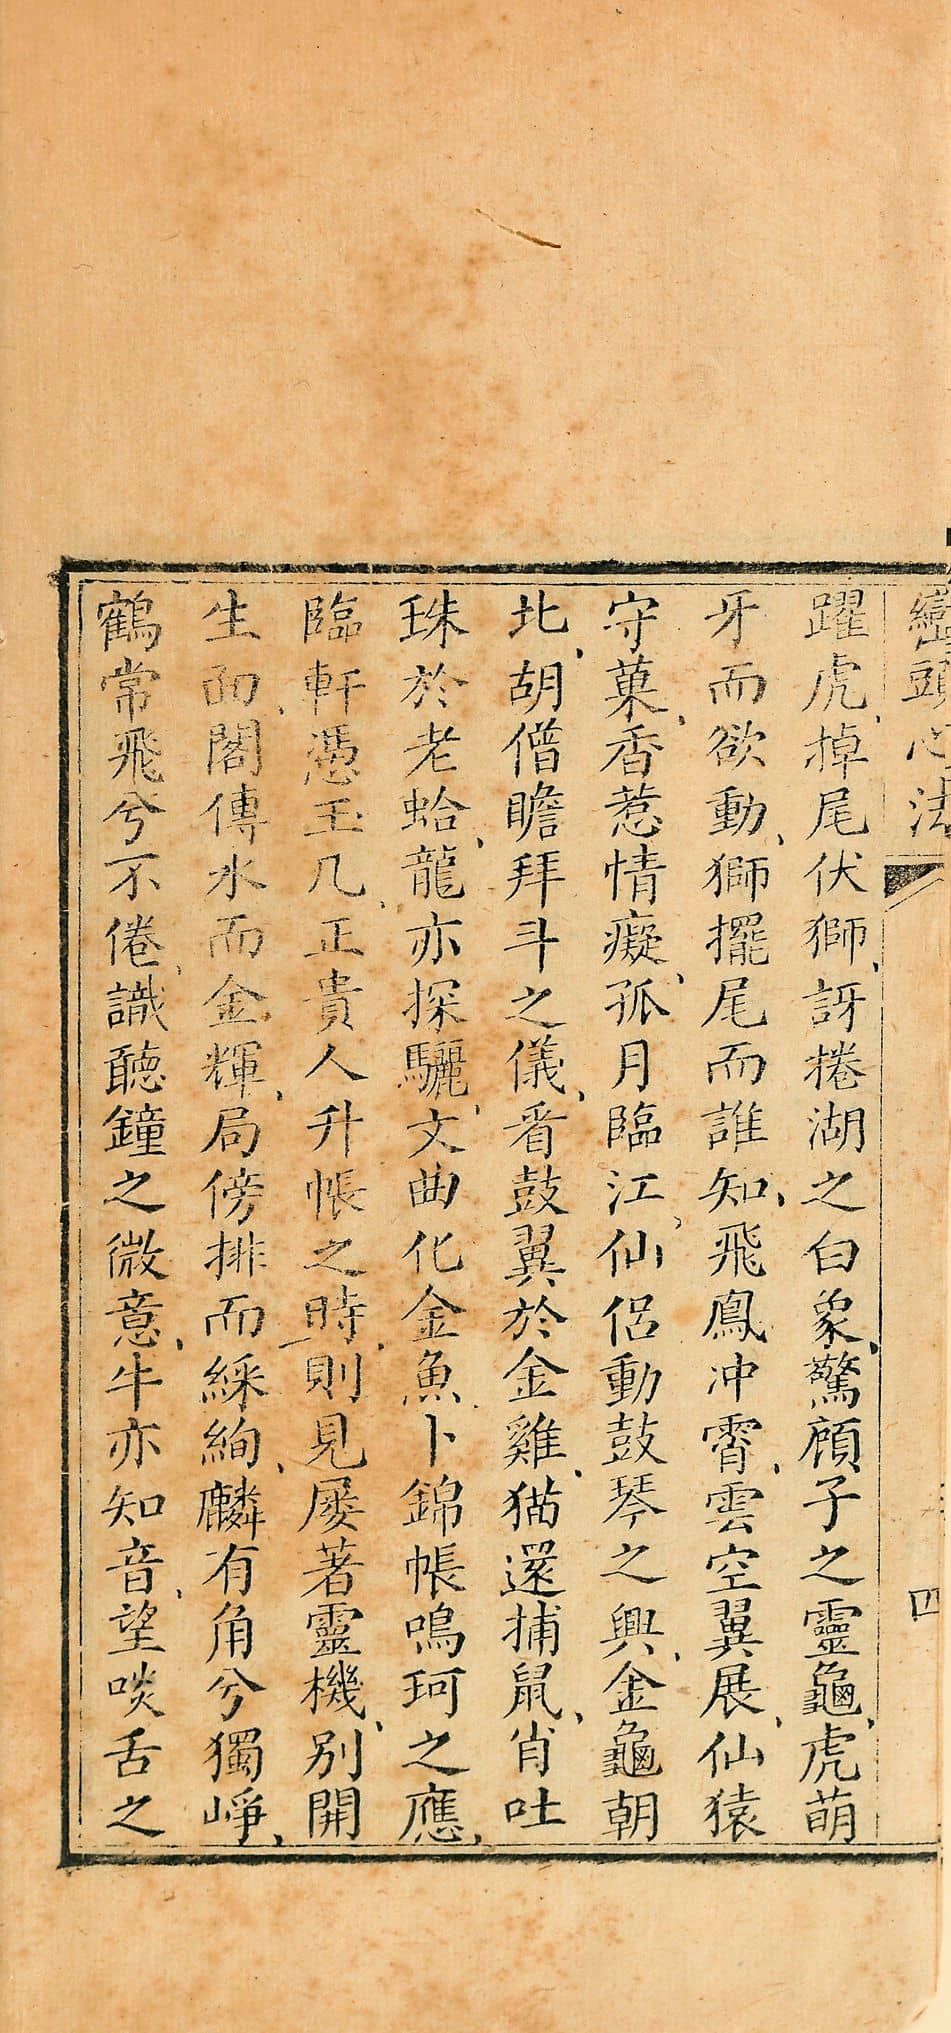 巒頭心法
四
躍虎、掉尾伏獅、訝捲湖之白象、驚顧子之靈龜、虎萌
牙而欲動、獅擺尾而誰知、飛鳳冲霄、雲空翼展、仙猿
守菓、香惹情癡、孤月臨江、仙侶動鼓琴之興、金龜朝
北、胡僧瞻拜斗之儀、看鼓翼於金雞、猫還捕鼠、肖吐
珠於老蛤、龍亦探驪、文曲化金魚卜錦帳鳴珂之應、
臨軒憑玉几、正貴人升帳之時、則見屡著靈機、別開
生面、閣傳水而金輝、局傍排而綵絢、麟有角兮獨崢、
鶴常飛兮不倦、識聽鐘之微意、牛亦知音、望啖舌之